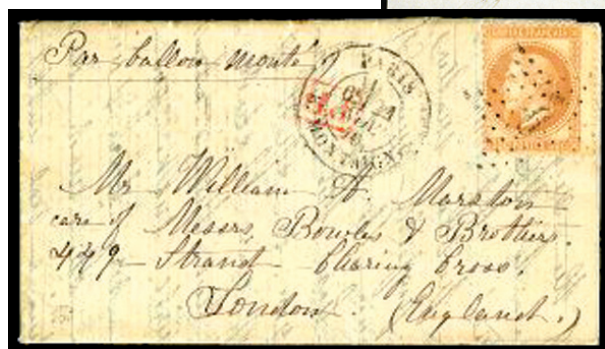 Par ballon monté
PARIS
Mr William H. Marston
care of Messrs Bowles & Brothers.
449 Strand Charing Cross.
London. (England.)